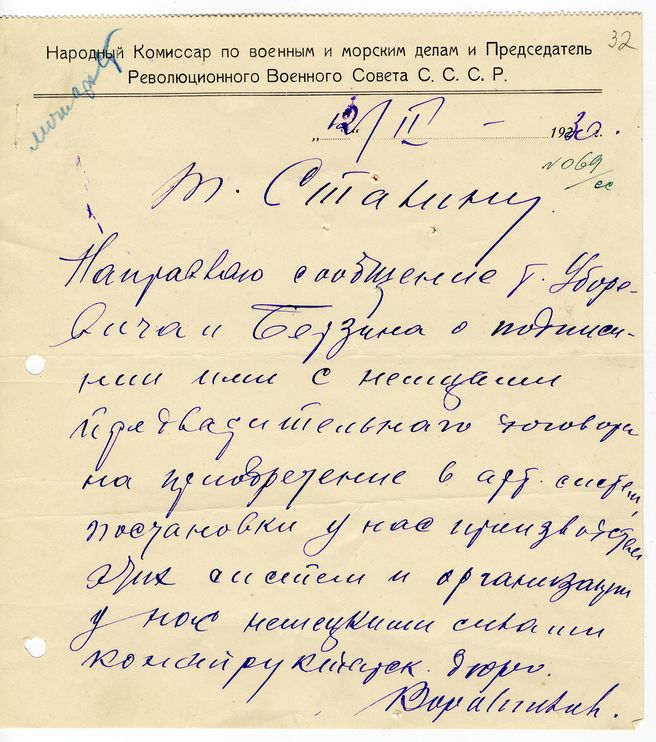 32
Народный Комиссар по военным и морским делам и Председатель
Революционного Военного Совета С. С. С. Р.
"12" / II – 1930.
№ 069/сс
т. Сталину.
Направляю сообщение т. Уборе-
вича и Берзина о подписа-
нии ими с немцами
предварительного договора
на приобретение в арт. систем,
постановки у нас производства
этих систем и организации
у нас немецкими силами
конструкторск. бюро.
Ворошилов.